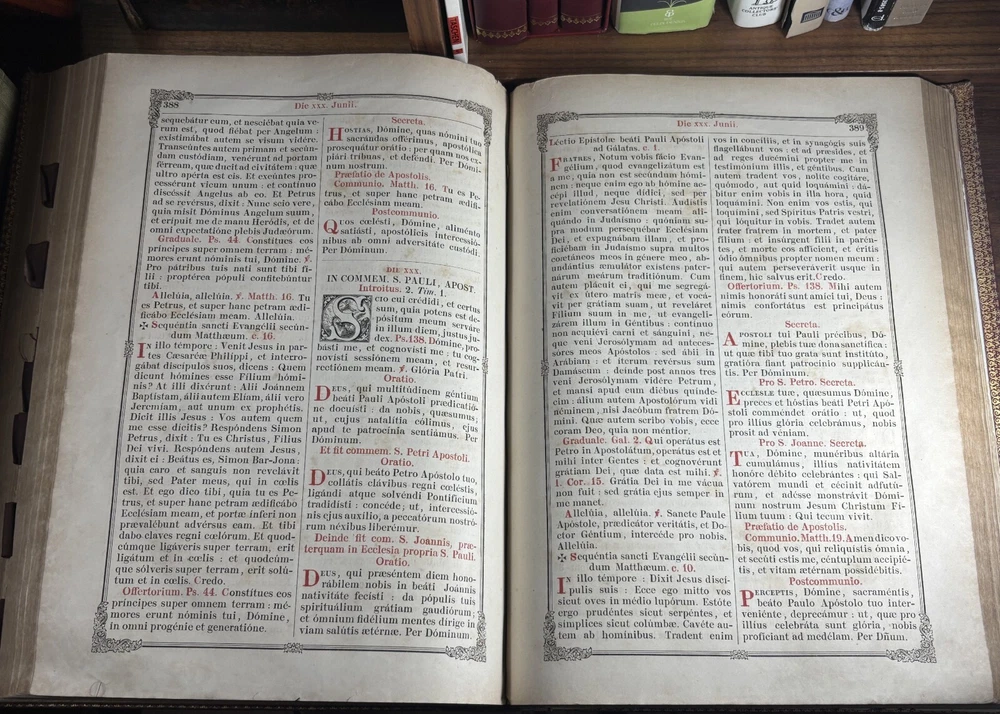 388
Die xxx. Junii.
sequebátur eum, et nesciébat quia ve-
rum est, quod fiébat per Angelum :
existimábat autem se visum vidére.
Transeúntes autem primam et secún-
dam custódiam, venérunt ad portam
férream, quæ ducit ad civitátem : quæ
ultro apérta est eis. Et exeúntes pro-
cessérunt vicum unum : et contínuo
discéssit Angelus ab eo. Et Petrus
ad se revérsus, dixit : Nunc scio vere,
quia misit Dóminus Angelum suum,
et erípuit me de manu Heródis, et de
omni expectatióne plebis Judæórum.
Graduale. Ps. 44. Constítues eos
príncipes super omnem terram : mé-
mores erunt nóminis tui, Dómine. ℣.
Pro pátribus tuis nati sunt tibi fí-
lii : proptérea pópuli confitebúntur
tibi.
Allelúia, allelúia. ℣. Matth. 16. Tu
es Petrus, et super hanc petram ædi-
ficábo Ecclésiam meam. Allelúia.
✠ Sequéntia sancti Evangélii secún-
dum Matthæum. c. 16.
In illo témpore : Venit Jesus in par-
tes Cæsaréæ Philíppi, et interro-
gábat discípulos suos, dicens : Quem
dicunt hómines esse Fílium hómi-
nis? At illi dixérunt : Alii Joánnem
Baptístam, álii autem Elíam, álii vero
Jeremíam, aut unum ex prophétis.
Dicit illis Jesus : Vos autem quem
me esse dícitis? Respóndens Simon
Petrus, dixit : Tu es Christus, Fílius
Dei vivi. Respóndens autem Jesus,
dixit ei : Beátus es, Simon Bar-Jona:
quia caro et sanguis non revelávit
tibi, sed Pater meus, qui in cœlis
est. Et ego dico tibi, quia tu es Pe-
trus, et super hanc petram ædificábo
Ecclésiam meam, et portæ ínferi non
prævalébunt advérsus eam. Et tibi
dabo claves regni cœlórum. Et quod-
cúmque ligáveris super terram, erit
ligátum et in cœlis : et quodcúm-
que sólveris super terram, erit solú-
tum et in cœlis. Credo.
Offertorium. Ps. 44. Constítues eos
príncipes super omnem terram : mé-
mores erunt nóminis tui, Dómine,
in omni progénie et generatióne.
Secreta.
Hostias, Dómine, quas nómini tuo
sacrándas offérimus, apostólica
prosequátur orátio : per quam nos ex-
piári tríbuas, et deféndi. Per Dómi-
num nostrum.
Præfatio de Apostolis.
Communio. Matth. 16. Tu es Pe-
trus, et super hanc petram ædifi-
cábo Ecclésiam meam.
Postcommunio.
Quos cœlésti, Dómine, aliménto
satiásti, apostólicis intercessió-
nibus ab omni adversitáte custódi.
Per Dóminum.
DIE XXX.
IN COMMEM. S. PAULI, APOST.
Introitus. 2. Tim. 1.
Scio cui crédidi, et certus
sum, quia potens est de-
pósitum meum serváre
in illum diem, justus ju-
dex. Ps. 138. Dómine, pro-
básti me, et cognovísti me : tu cog-
novísti sessiónem meam, et resur-
rectiónem meam. ℣. Glória Patri.
Oratio.
Deus, qui multitúdinem géntium
beáti Pauli Apóstoli prædicatió-
ne docuísti : da nobis, quǽsumus,
ut, cujus natalítia cólimus, ejus
apud te patrocínia sentiámus. Per
Dóminum.
Et fit commem. S. Petri Apostoli.
Oratio.
Deus, qui beáto Petro Apóstolo tuo,
collátis clávibus regni cœléstis,
ligándi atque solvéndi Pontifícium
tradidísti : concéde, ut, intercessió-
nis ejus auxílio, a peccatórum nostró-
rum néxibus liberémur.
Deinde fit com. S. Joannis, præ-
terquam in Ecclesia propria S. Pauli.
Oratio.
Deus, qui præséntem diem hono-
rábilem nobis in beáti Joánnis
nativitáte fecísti : da pópulis tuis
spirituálium grátiam gaudiórum;
et ómnium fidélium mentes dírige in
viam salútis ætérnæ. Per Dóminum.
Die xxx. Junii.
389
Léctio Epístolæ beáti Pauli Apóstoli
ad Gálatas. c. 1.
Fratres, Notum vobis fácio Evan-
gélium, quod evangelizátum est
a me, quia non est secúndum hómi-
nem : neque enim ego ab hómine ac-
cépi illud, neque dídici, sed per
revelatiónem Jesu Christi. Audístis
enim conversatiónem meam ali-
quándo in Judaísmo : quóniam su-
pra modum persequébar Ecclésiam
Dei, et expugnábam illam, et pro-
ficiébam in Judaísmo supra multos
coætáneos meos in génere meo, ab-
undántius æmulátor exístens pater-
nárum meárum traditiónum. Cum
autem plácuit ei, qui me segregá-
vit ex útero matris meæ, et vocá-
vit per grátiam suam, ut reveláret
Fílium suum in me, ut evangeli-
zárem illum in Géntibus : contínuo
non acquiévi carni et sánguini, ne-
que veni Jerosólymam ad anteces-
sóres meos Apóstolos : sed ábii in
Arábiam : et íterum revérsus sum
Damáscum : deínde post annos tres
veni Jerosólymam vidére Petrum,
et mansi apud eum diébus quínde-
cim : álium autem Apostolórum vidi
néminem, nisi Jacóbum fratrem Dó-
mini. Quæ autem scribo vobis, ecce
coram Deo, quia non méntior.
Graduale. Gal. 2. Qui operátus est
Petro in Apostolátum, operátus est et
mihi inter Gentes : et cognovérunt
grátiam Dei, quæ data est mihi. ℣.
1. Cor. 15. Grátia Dei in me vácua
non fuit : sed grátia ejus semper in
me manet.
Allelúia, allelúia. ℣. Sancte Paule
Apóstole, prædicátor veritátis, et Do-
ctor Géntium, intercéde pro nobis.
Allelúia.
✠ Sequéntia sancti Evangélii secún-
dum Matthæum. c. 10.
In illo témpore : Dixit Jesus discí-
pulis suis : Ecce ego mitto vos
sicut oves in médio lupórum. Estóte
ergo prudéntes sicut serpéntes, et
símplices sicut colúmbæ. Cavéte au-
tem ab homínibus. Tradent enim
vos in concíliis, et in synagógis suis
flagellábunt vos : et ad præsides, et
ad reges ducémini propter me in
testimónium illis, et géntibus. Cum
autem tradent vos, nolíte cogitáre,
quómodo, aut quid loquámini : dá-
bitur enim vobis in illa hora, quid
loquámini. Non enim vos estis, qui
loquímini, sed Spíritus Patris vestri,
qui lóquitur in vobis. Tradet autem
frater fratrem in mortem, et pater
fílium : et insúrgent fílii in parén-
tes, et morte eos affícient, et éritis
ódio ómnibus propter nomen meum :
qui autem perseveráverit usque in
finem, hic salvus erit. Credo.
Offertorium. Ps. 138. Mihi autem
nimis honoráti sunt amíci tui, Deus :
nimis confortátus est principátus
eórum.
Secreta.
Apostoli tui Pauli précibus, Dó-
mine, plebis tuæ dona sanctífica :
ut quæ tibi tuo grata sunt institúto,
gratióra fiant patrocínio supplicán-
tis. Per Dóminum.
Pro S. Petro. Secreta.
Ecclesiæ tuæ, quǽsumus Dómine,
preces et hóstias beáti Petri Apó-
stoli comméndet orátio : ut, quod
pro illíus glória celebrámus, nobis
prosit ad véniam.
Pro S. Joanne. Secreta.
Tua, Dómine, munéribus altária
cumulámus, illíus nativitátem
honóre débito celebrántes : qui Sal-
vatórem mundi et cécinit adfutú-
rum, et adésse monstrávit Dómi-
num nostrum Jesum Christum Fí-
lium tuum : Qui tecum vivit.
Præfatio de Apostolis.
Communio. Matth. 19. Amen dico vo-
bis, quod vos, qui reliquístis ómnia,
et secúti estis me, céntuplum accipié-
tis, et vitam ætérnam possidébitis.
Postcommunio.
Perceptis, Dómine, sacraméntis,
beáto Paulo Apóstolo tuo inter-
veniénte, deprecámur : ut, quæ pro
illíus celebráta sunt glória, nobis
profíciant ad medélam. Per Dñum.
TASCHEN
ANTIQUE
COLLECTORS
CLUB
&